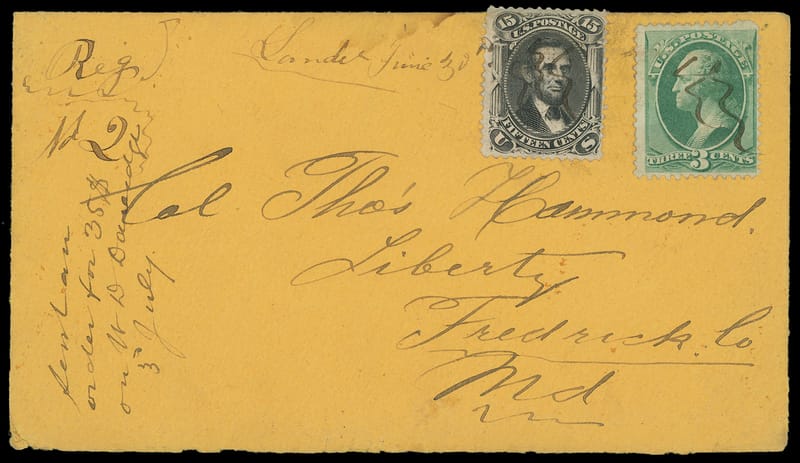 Reg
No 2
Lander June 30
15 15
U.S. POSTAGE
FIFTEEN CENTS
U S
U.S. POSTAGE
THREE 3 CENTS
Col. Tho's Hammond.
Liberty
Fredrick. Co
Md
Sent an
order for 35$
on W D
5 July.